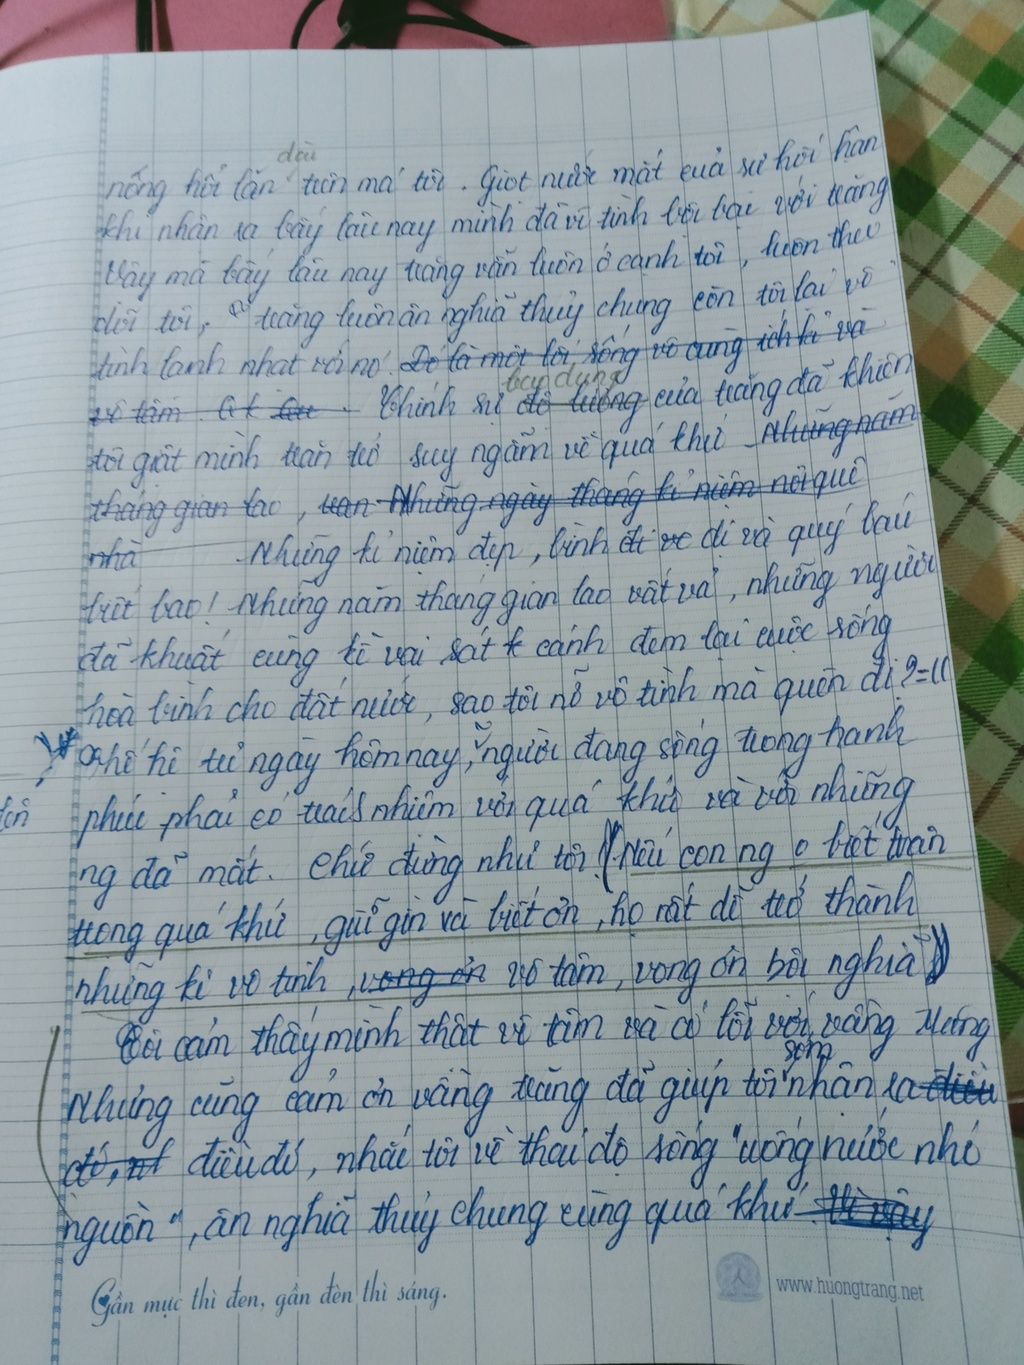 dài
nóng hổi lăn trên má tôi. Giọt nước mắt của sự hối hận
khi nhận ra bấy lâu nay mình đã vô tình bội bạc với trăng
Vậy mà bấy lâu nay trăng vẫn luôn ở cạnh tôi, luôn theo
dõi tôi, trăng luôn ân nghĩa thuỷ chung còn tôi lại vô
tình lạnh nhạt với nó. Đó là một lối sống vô cùng ích kỉ và
bao dung
vô tâm. Chính sự độ lượng của trăng đã khiến
tôi giật mình trăn trở suy ngẫm về quá khứ Những năm
tháng gian lao, Những ngày tháng kỉ niệm nơi quê
nhà Những kỉ niệm đẹp, bình dị và quý báu
biết bao! Những năm tháng gian lao vất vả, những người
đã khuất cùng kề vai sát cánh đem lại cuộc sống
hoà bình cho đất nước, sao tôi nỡ vô tình mà quên đi?
thế hệ từ ngày hôm nay, người đang sống trong hạnh
phúc phải có trách nhiệm với quá khứ và với những
ng đã mất. Chứ đừng như tôi. (Nếu con ng o biết trân
trọng quá khứ, giữ gìn và biết ơn, họ rất dễ trở thành
những kẻ vô tình, vong ơn vô tâm, vong ơn bội nghĩa)
Tôi cảm thấy mình thật vô tâm và có lỗi với vầng trăng
sớm
Nhưng cũng cảm ơn vầng trăng đã giúp tôi nhận ra điều
đó, điều đó, nhắc tôi về thái độ sống "uống nước nhớ
nguồn", ân nghĩa thuỷ chung cùng quá khứ. Vì vậy
Gần mực thì đen, gần đèn thì sáng.
www.huongtrang.net